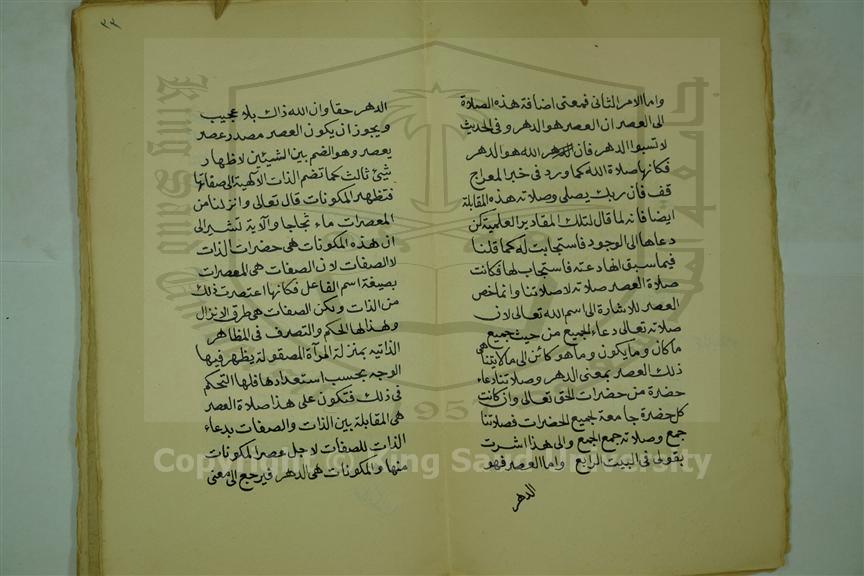 واما الامر الثانى فمعنى اضافة هذه الصلاة
الى العصر ان العصر هو الدهر وفى الحديث
لا تسبوا الدهر فان الله هو الدهر
فكانها صلاة الله كما ورد فى خبر المعراج
قف فان ربك يصلى وصلاته هذه المقابلة
ايضا فانه لما قال لتلك المقادير العلمية كن
دعاها الى الوجود فاستجابت له كما قلنا
فيما سبق انها دعته فاستجاب لها فكانت
صلاة العصر صلاته لا صلاتنا وانما خص
العصر للاشارة الى اسم الله تعالى لان
صلاته تعالى دعاء الجميع من حيث جميع
ما كان وما يكون وما هو كائن الى ما لا يتناهى
ذلك العصر بمعنى الدهر وصلاتنا دعاء
حضرة من حضرات الحق تعالى وان كانت
كل حضرة جامعة لجميع الحضرات فصلاتنا
جمع وصلاته جمع الجمع والى هذا اشرت
بقولى فى البيت الرابع واما العصر فهو
الدهر
٣٣
الدهر حقا وان الله ذاك بلا عجيب
ويجوز ان يكون العصر مصدر عصر
يعصر وهو الضم بين الشيئين لاظهار
شئ ثالث كما تضم الذات الالهية الى صفاتها
فتظهر المكونات قال تعالى وانزلنا من
المعصرات ماء ثجاجا والآية تشير الى
ان هذه المكونات هى حضرات الذات
لا الصفات لان الصفات هى المعصرات
بصيغة اسم الفاعل فكانها اعتصرت ذلك
من الذات ولكن الصفات هو طرق الانزال
ولهذا لها الحكم والتصرف فى المظاهر
الذاتيه بمنزلة المرآة المصقولة يظهر فيها
الوجه بحسب استعدادها فلها التحكم
فى ذلك فتكون على هذا صلاة العصر
هى المقابلة بين الذات والصفات بدعاء
الذات للصفات لاجل عصر المكونات
منها والمكونات هى الدهر فيرجع الى معنى
Copyright © King Saud University
King Saud University
1957